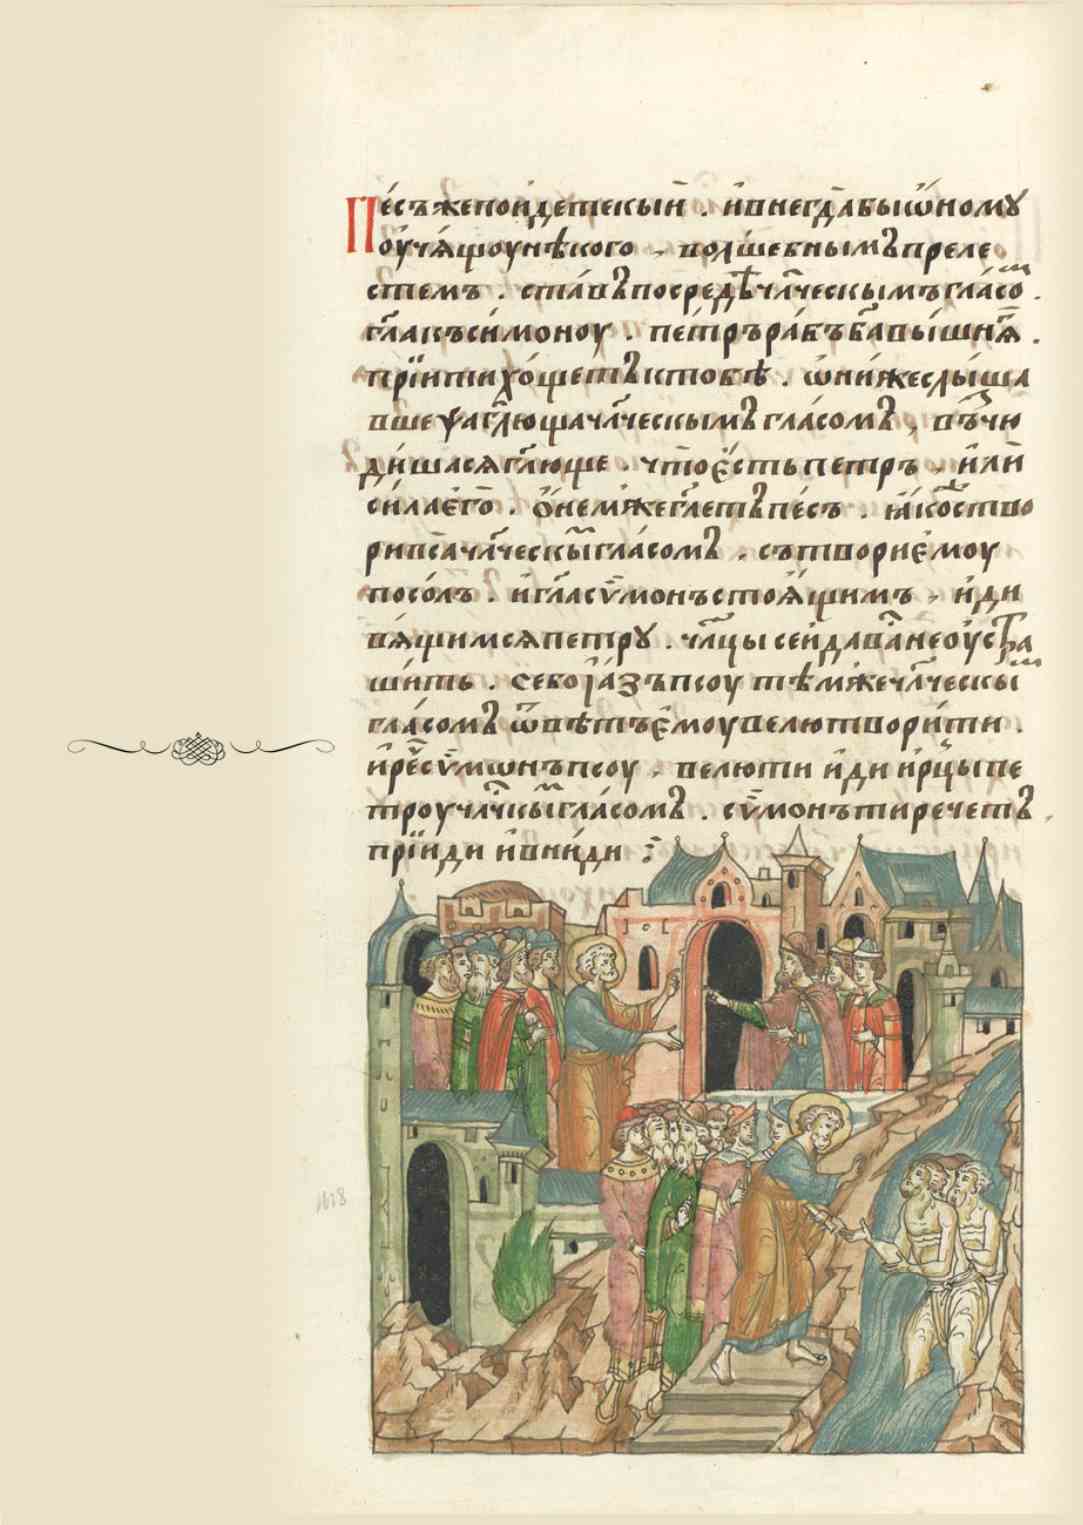 Пе́съ же пои́де текы́й . и҆ внегда̀ бы ѡ҆ному
оу҆чѧ́щоу нѣ́кого , волше́бнымъ преле
стемъ . ста́въ посредѣ̀ чл҃ческымъ гла́со́м .
гл҃а къ си́моноу . пе́тръ ра́бъ бг҃а вы́шнѧ҃ .
прїити хо́щетъ к тобѣ̀ . ѡ҆ни́ же слы́ша
вше ѱа̀ гл҃юща чл҃ческымъ гла́сомъ , въ чю
ди́шасѧ гл҃юще . что̀ є҆́сть петръ , и҆лѝ
си́ла є҆гѡ̀ . ѡ҆ не́м же гл҃етъ пе́съ . ꙗ҆́ко ство
ри пса̀ чл҃ческы́м гла́сомъ . сътвори є҆моу
посо́лъ . и҆ гл҃а сѵ́монъ стоѧ́щимъ , и҆ ди
вѧ́щимсѧ петру . чл҃цы сей да ва́с не оу҆стра
ши́ть . се бо ꙗ҆́зъ псоу тѣ́м же чл҃ческы́м
гла́сомъ ѿвѣтъ є҆моу велю твори́ти .
и҆ рече́ сѵ́мѡнъ псоу , велю ти и҆́ди и҆ рцы̀ пе
троу чл҃чкы́м гла́сомъ . сѵ́монъ ти речетъ
прїйди и҆ вни́ди :
1028